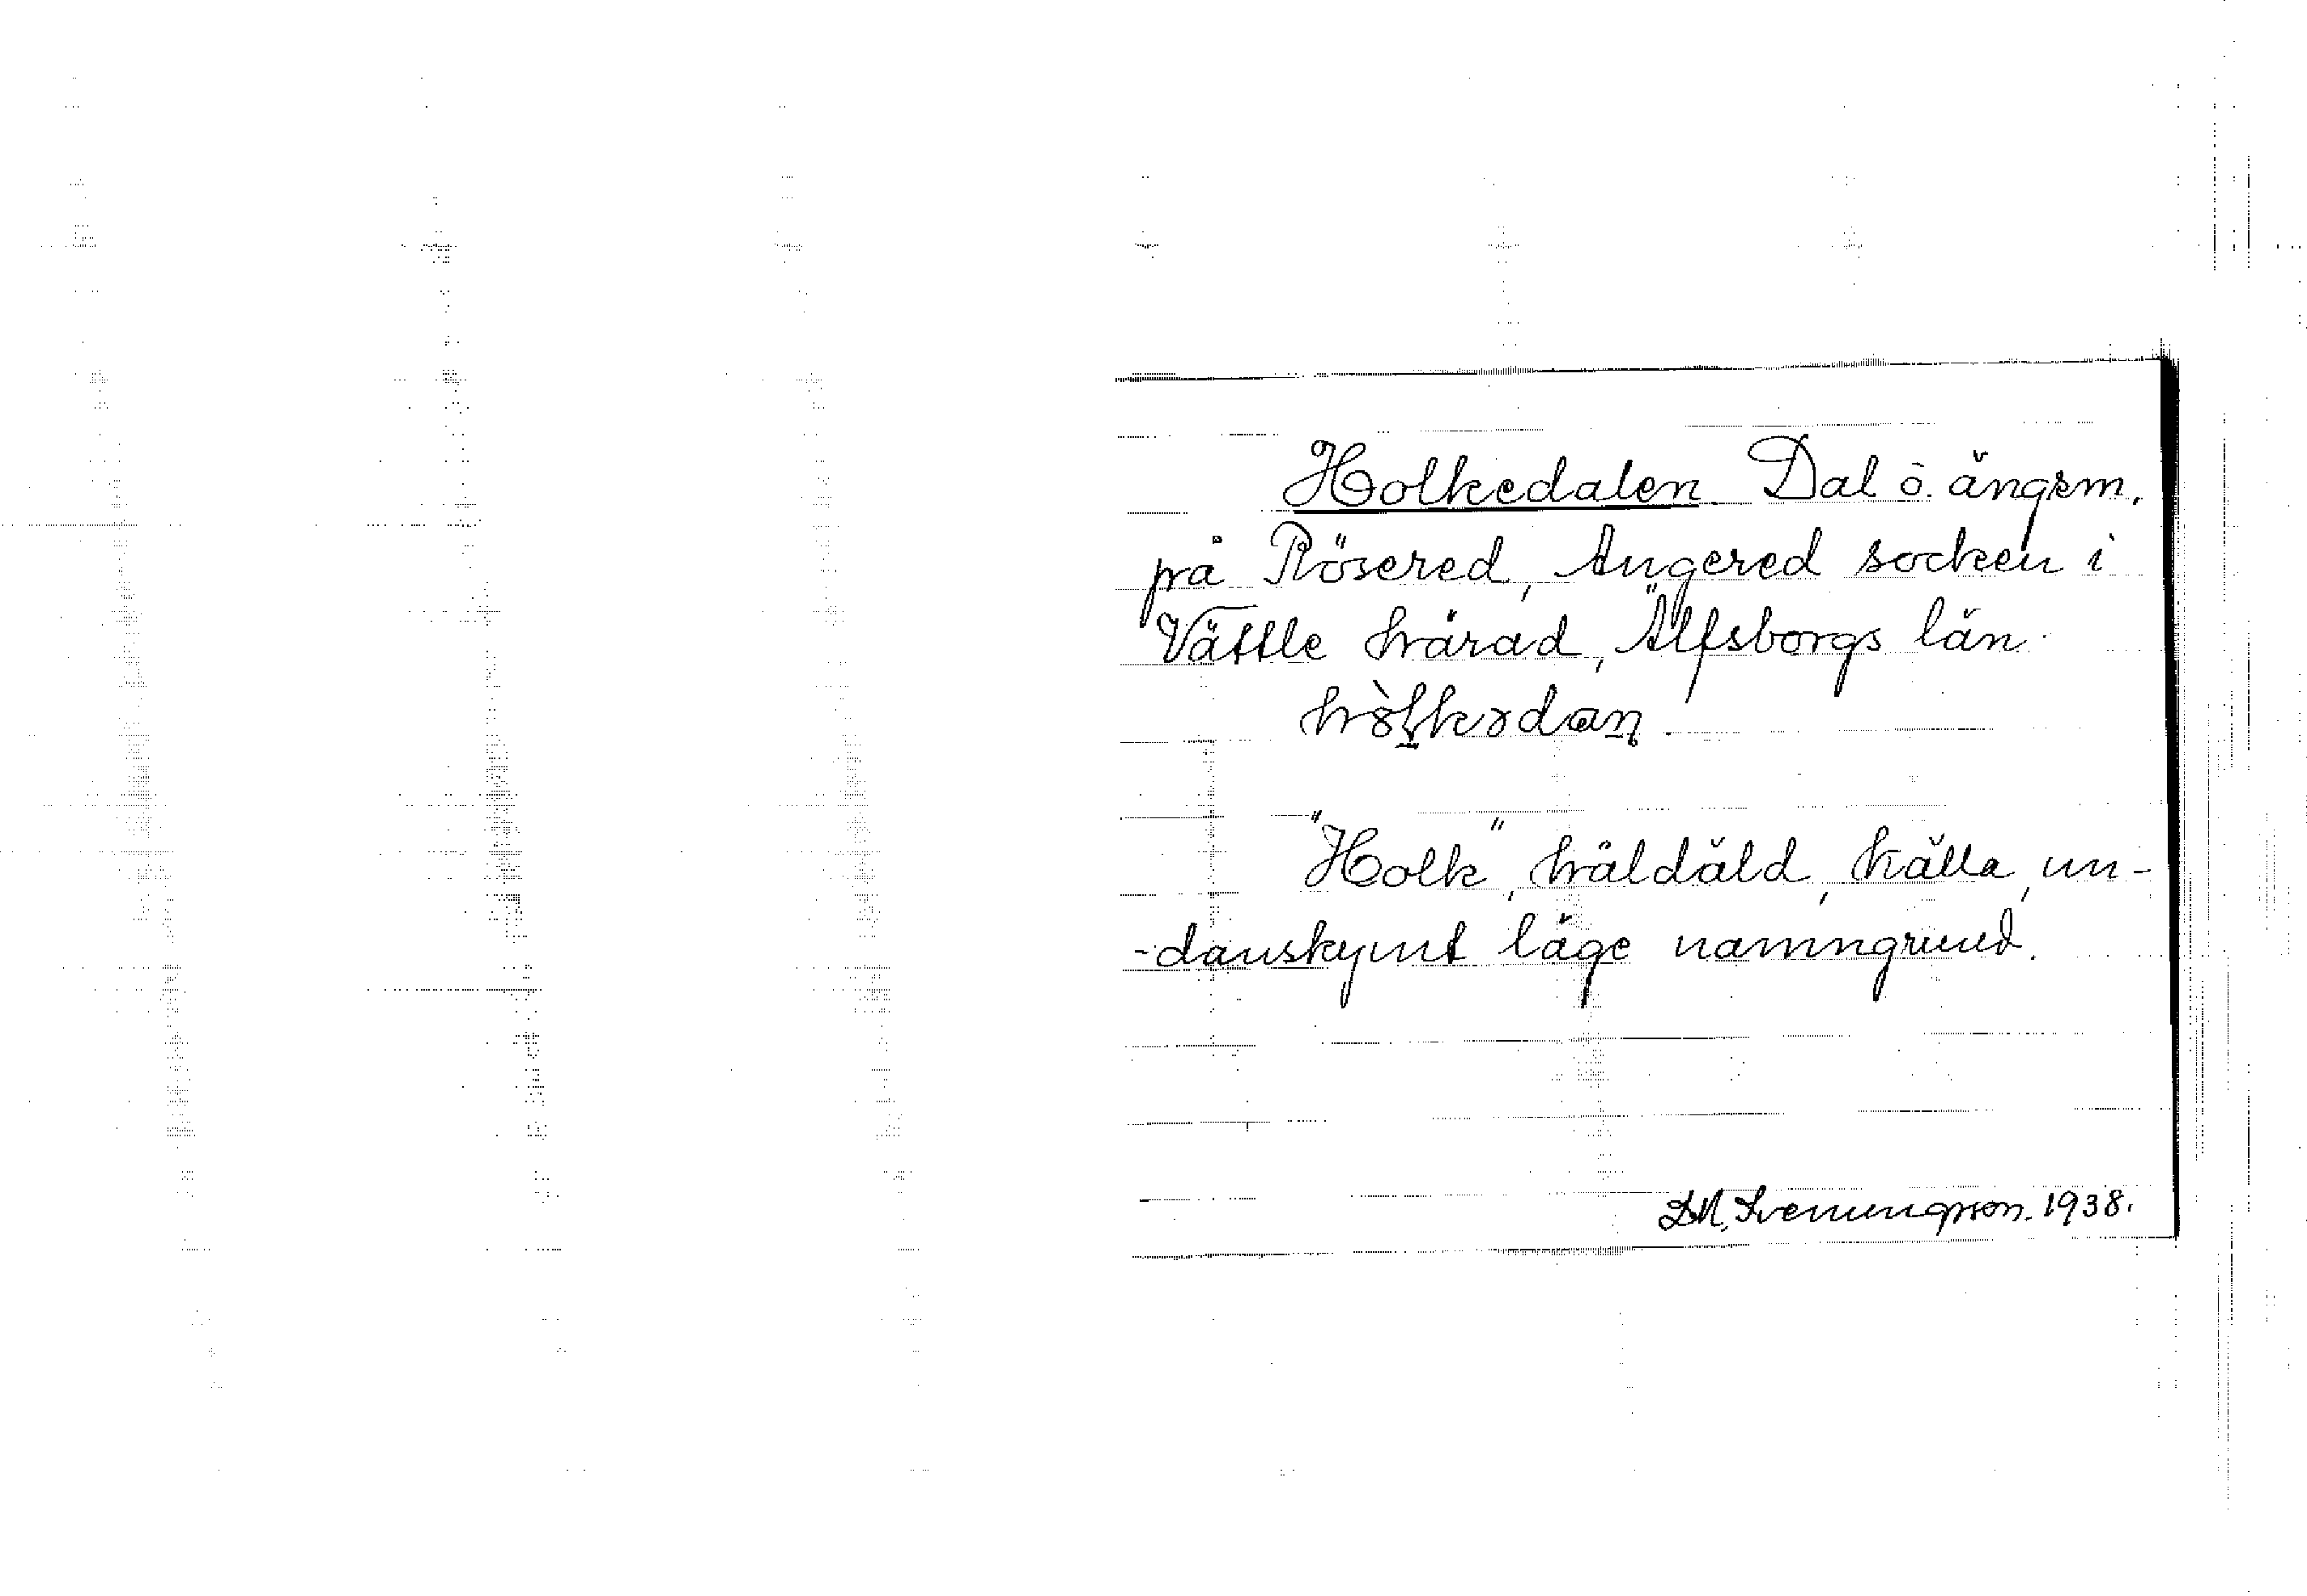 Holkedalen Dal o. ängsm.
på Rösered, Angered socken i
Vättle härad, Älfsborgs län.
"Holk", häldäld, källa, un-
-danskymt läge namngrund.
D.N. Svenungsson. 1938.